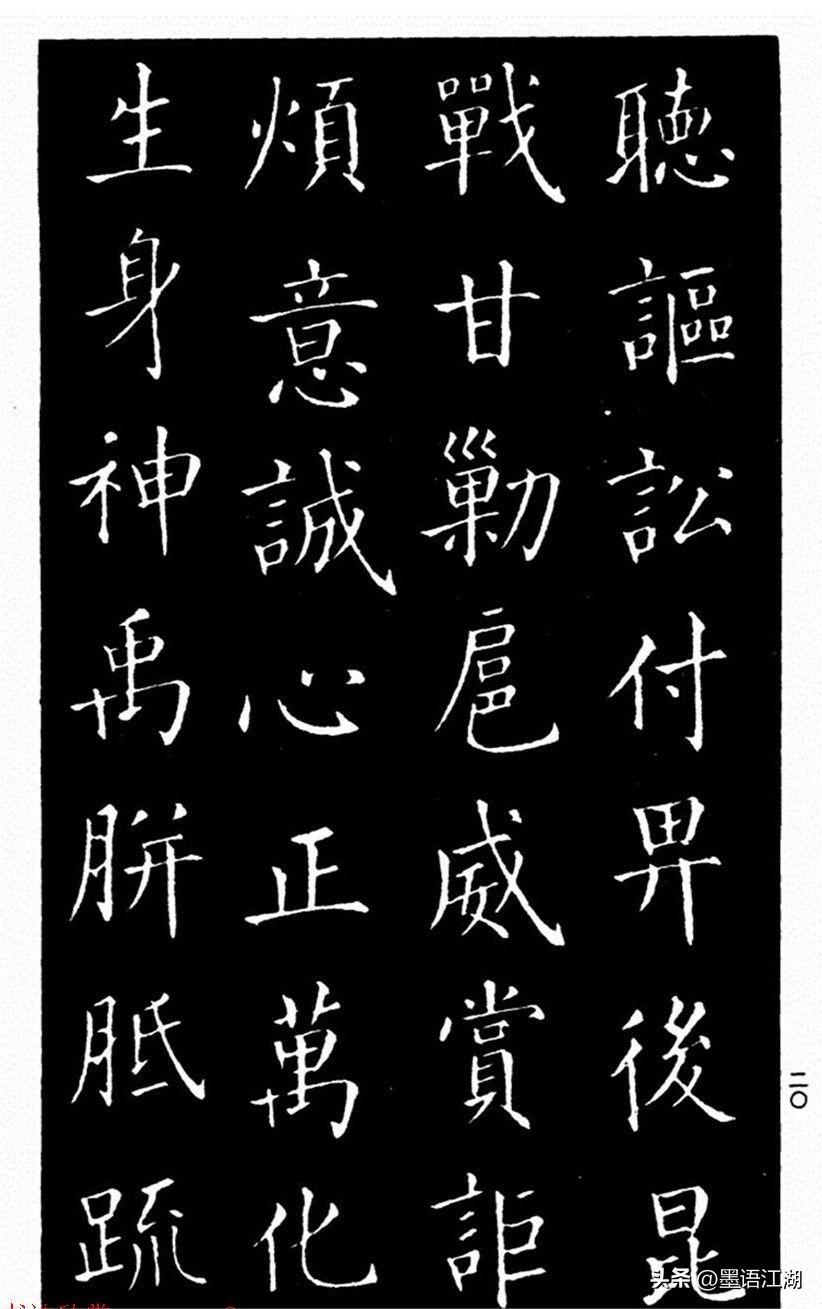 聽謳訟付畀後昆
戰甘勦扈威賞詎
煩意誠心正萬化
生身神禹胼胝疏
二〇
头条 @墨语江湖